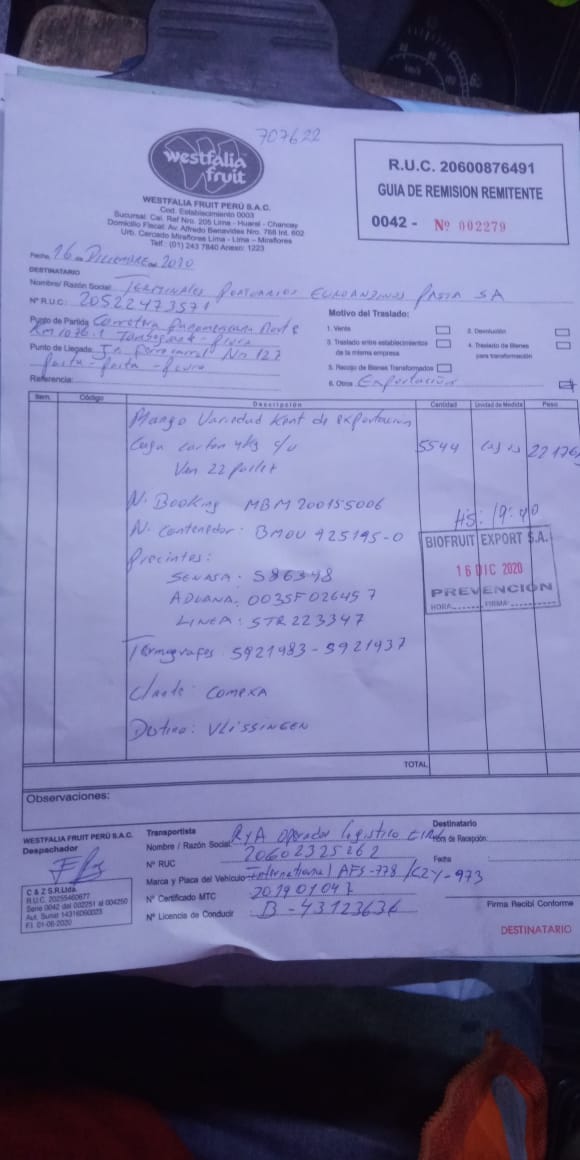 707622
westfalia
fruit
WESTFALIA FRUIT PERÚ S.A.C.
Cod. Establecimiento 0003
Sucursal: Cal. Raf Nro. 205 Lima - Huaral - Chancay
Domicilio Fiscal: Av. Alfredo Benavides Nro. 768 Int. 602
Urb. Cercado Miraflores Lima - Lima - Miraflores
Telf.: (01) 243 7840 Anexo: 1223
R.U.C. 20600876491
GUIA DE REMISION REMITENTE
0042 - Nº 002279
Fecha, 16 de Diciembre del 2020
DESTINATARIO
Nombre/ Razón Social: Terminales Portuarios Euroandinos Paita SA
Nº R.U.C: 20522473571
Punto de Partida Carretera Panamericana Norte
Km 1076.1 - Piura
Punto de Llegada: Ferrocarril No 127
Paita - Paita - Piura
Referencia:
Motivo del Traslado:
1. Venta
2. Devolución
3. Traslado entre establecimientos de la misma empresa
4. Traslado de Bienes para transformación
5. Recojo de Bienes Transformados
6. Otros Exportación
Item. Código Descripción Cantidad Unidad de Medida Peso
Mango Variedad Kent de exportacion
Caja carton 4kg c/u 5544 22176
Van 22 pallet
N. Booking MBM200155006
N. Contenedor: BMOU 925195-0
HS: 19:40
BIOFRUIT EXPORT S.A.
16 DIC 2020
PREVENCIÓN
HORA FIRMA:
Precintos:
SENASA: 586348
ADUANA: 0035F026457
LINEA: STR223347
Termografos 5921983-5921937
Cliente: COMEXA
Destino: VLISSINGEN
TOTAL
Observaciones:
WESTFALIA FRUIT PERÚ S.A.C.
Despachador
Transportista
Nombre / Razón Social: RyA Operador Logistico EIRL
Nº RUC 20602325262
Marca y Placa del Vehículo International AFS-778 / C2Y-973
Nº Certificado MTC 201901047
Nº Licencia de Conducir B-43123636
Destinatario
Hora de Recepción:
Fecha
Firma Recibí Conforme
DESTINATARIO
C & Z S.R.Ltda.
R.U.C. 20255460677
Serie 0042 del 002251 al 004250
Aut. Sunat 14316090023
F.I. 01-06-2020